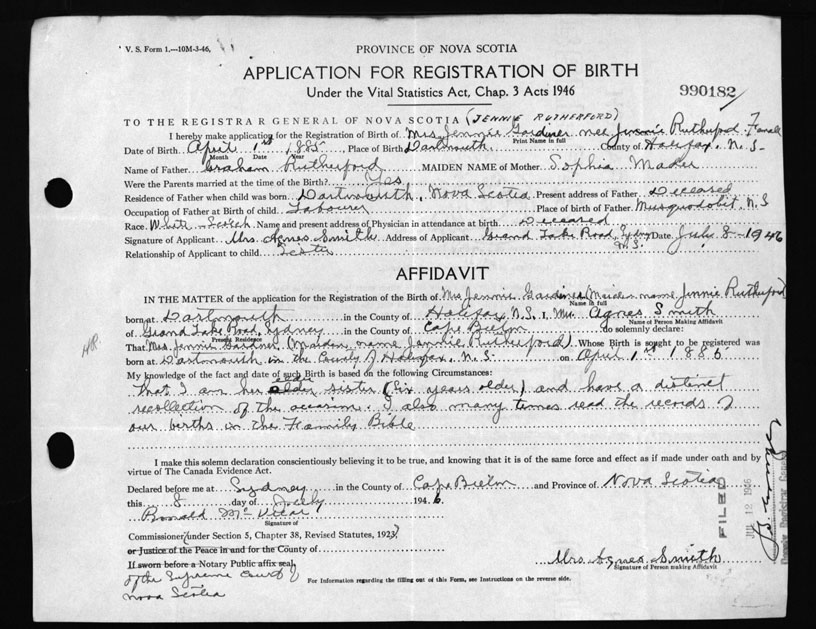 V. S. Form 1.—10M-3-46,
PROVINCE OF NOVA SCOTIA
APPLICATION FOR REGISTRATION OF BIRTH
Under the Vital Statistics Act, Chap. 3 Acts 1946
990182
TO THE REGISTRAR GENERAL OF NOVA SCOTIA (JENNIE RUTHERFORD)
I hereby make application for the Registration of Birth of Mrs. Jennie Gardner nee Jennie Rutherford Female
Print Name in full
Date of Birth April 1st 1885 Place of Birth Dartmouth County of Halifax, N. S.
Month Date Year
Name of Father Graham Rutherford MAIDEN NAME of Mother Sophia
Were the Parents married at the time of Birth? Yes
Residence of Father when child was born Dartmouth, Nova Scotia Present address of Father Deceased
Occupation of Father at Birth of child Labourer Place of Birth of Father Musquodobit, N. S
Race White Scotch Name and present address of Physician in attendance at birth Deceased
Signature of Applicant Mrs. Agnes Smith Address of Applicant Grand Lake Road, Sydney N.S. Date July 8 - 1946
Relationship of Applicant to child Sister
AFFIDAVIT
IN THE MATTER of the application for the Registration of Birth of Mrs Jennie Gardner (Maiden name Jennie Rutherford)
Name in full
born at Dartmouth in the County of Halifax, N.S. I, Mrs Agnes Smith
Name of Person Making Affidavit
of Grand Lake Road, Sydney in the County of Cape Breton do solemnly declare:
Present Residence
That Mrs. Jennie Gardner (Maiden name Jennie Rutherford) Whose Birth is sought to be registered was
born at Dartmouth in the County of Halifax, N. S. on April 1st 1885
My knowledge of the fact and date of such Birth is based on the following Circumstances:
that I am her older sister (six years older) and have a distinct
recollection of the occasion. I also many times read the records of
our births in the Family Bible
I make this solemn declaration conscientiously believing it to be true, and knowing that it is of the same force and effect as if made under oath and by
virtue of The Canada Evidence Act.
Declared before me at Sydney in the County of Cape Breton and Province of Nova Scotia
this 8 day of July 1946.
Ronald McVicar
Signature of
Commissioner (under Section 5, Chapter 38, Revised Statutes, 1923)
or Justice of the Peace in and for the County of
If sworn before a Notary Public affix seal
of the Supreme Court of
Nova Scotia
Mrs. Agnes Smith
Signature of Person making Affidavit
For Information regarding the filling out of this Form, see Instructions on the reverse side.
FILED
JUL 12 1946
Deputy Registrar General